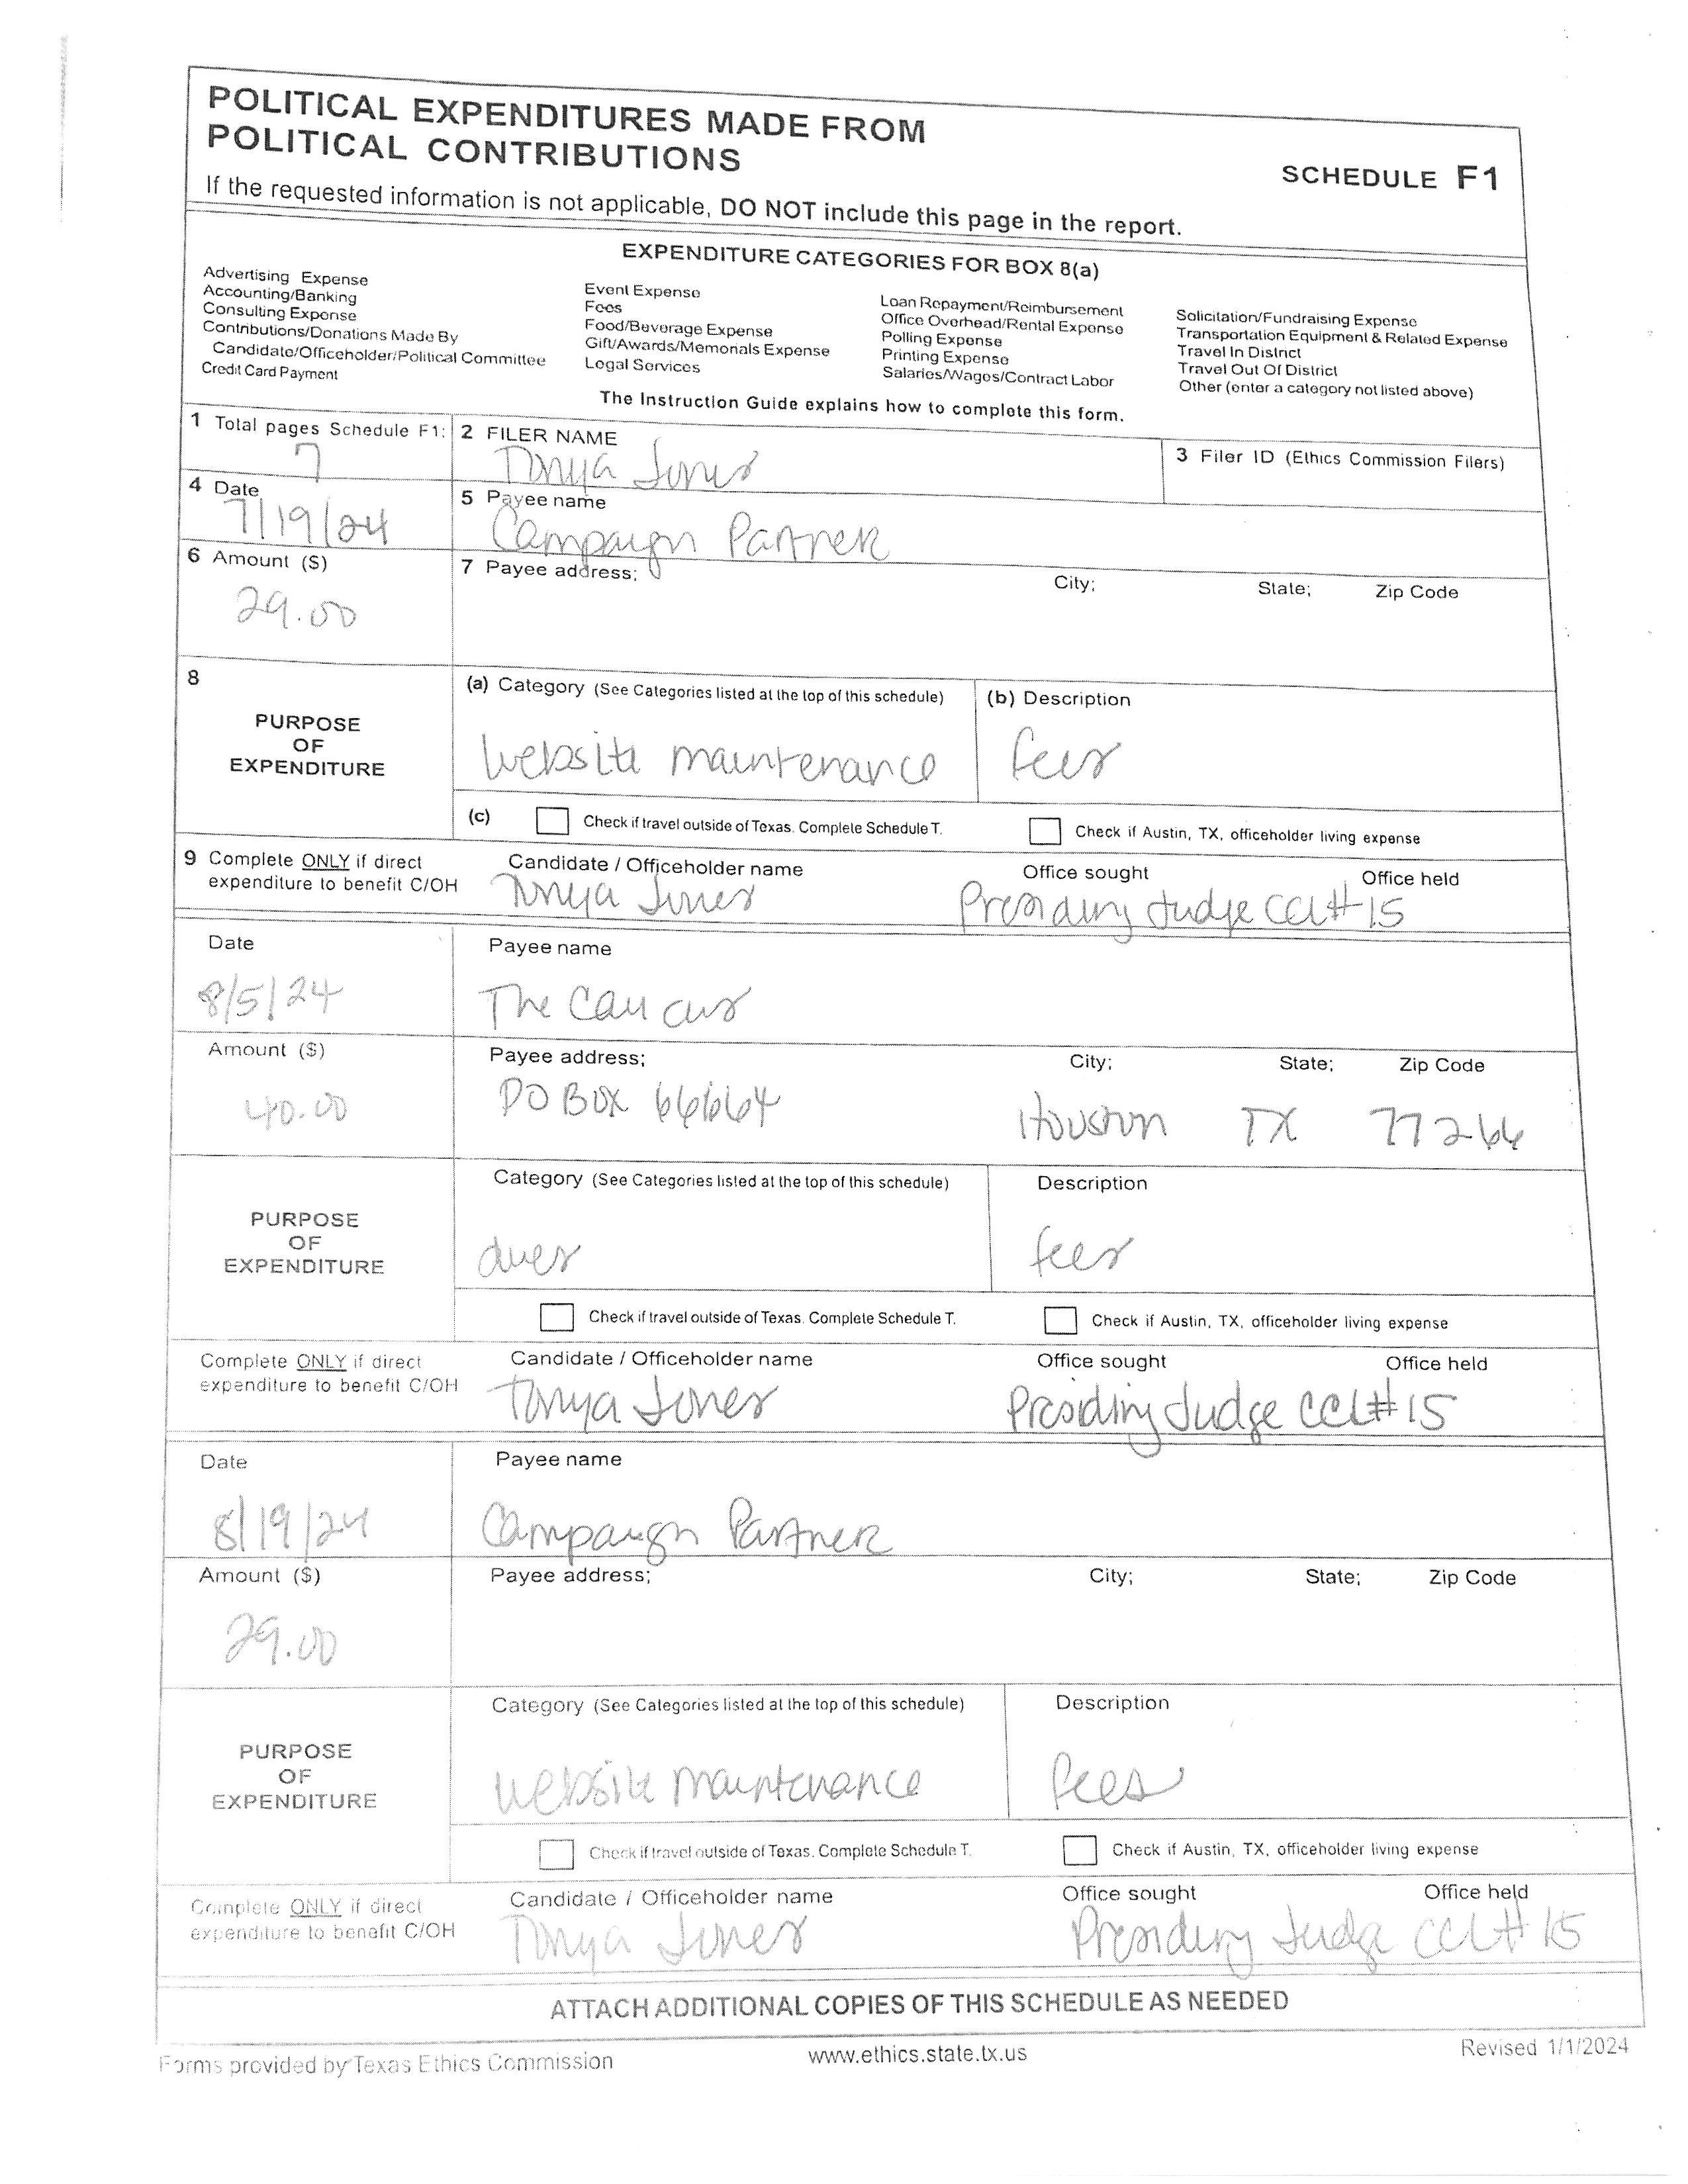 POLITICAL EXPENDITURES MADE FROM
POLITICAL CONTRIBUTIONS
SCHEDULE F1
If the requested information is not applicable, DO NOT include this page in the report.
EXPENDITURE CATEGORIES FOR BOX 8(a)
Advertising Expense
Accounting/Banking
Consulting Expense
Contributions/Donations Made By
Candidate/Officeholder/Political Committee
Credit Card Payment
Event Expense
Fees
Food/Beverage Expense
Gift/Awards/Memorials Expense
Legal Services
Loan Repayment/Reimbursement
Office Overhead/Rental Expense
Polling Expense
Printing Expense
Salaries/Wages/Contract Labor
Solicitation/Fundraising Expense
Transportation Equipment & Related Expense
Travel In District
Travel Out Of District
Other (enter a category not listed above)
The Instruction Guide explains how to complete this form.
1 Total pages Schedule F1: 2 FILER NAME 3 Filer ID (Ethics Commission Filers)
7 Tonya Jones
4 Date 5 Payee name
7/19/24 Campaign Partner
6 Amount ($) 7 Payee address; City; State; Zip Code
29.00
8 (a) Category (See Categories listed at the top of this schedule) (b) Description
PURPOSE
OF
EXPENDITURE
website maintenance fees
(c) Check if travel outside of Texas. Complete Schedule T. Check if Austin, TX, officeholder living expense
9 Complete ONLY if direct
expenditure to benefit C/OH
Candidate / Officeholder name Office sought Office held
Tonya Jones Presiding Judge CCL#15
Date Payee name
8/5/24 The Caucus
Amount ($) Payee address; City; State; Zip Code
40.00 PO BOX 66664 Houston TX 77266
Category (See Categories listed at the top of this schedule) Description
PURPOSE
OF
EXPENDITURE
dues fees
Check if travel outside of Texas. Complete Schedule T. Check if Austin, TX, officeholder living expense
Complete ONLY if direct
expenditure to benefit C/OH
Candidate / Officeholder name Office sought Office held
Tonya Jones Presiding Judge CCL#15
Date Payee name
8/19/24 Campaign Partner
Amount ($) Payee address; City; State; Zip Code
29.00
Category (See Categories listed at the top of this schedule) Description
PURPOSE
OF
EXPENDITURE
website maintenance fees
Check if travel outside of Texas. Complete Schedule T. Check if Austin, TX, officeholder living expense
Complete ONLY if direct
expenditure to benefit C/OH
Candidate / Officeholder name Office sought Office held
Tonya Jones Presiding Judge CCL#15
ATTACH ADDITIONAL COPIES OF THIS SCHEDULE AS NEEDED
Forms provided by Texas Ethics Commission www.ethics.state.tx.us Revised 1/1/2024